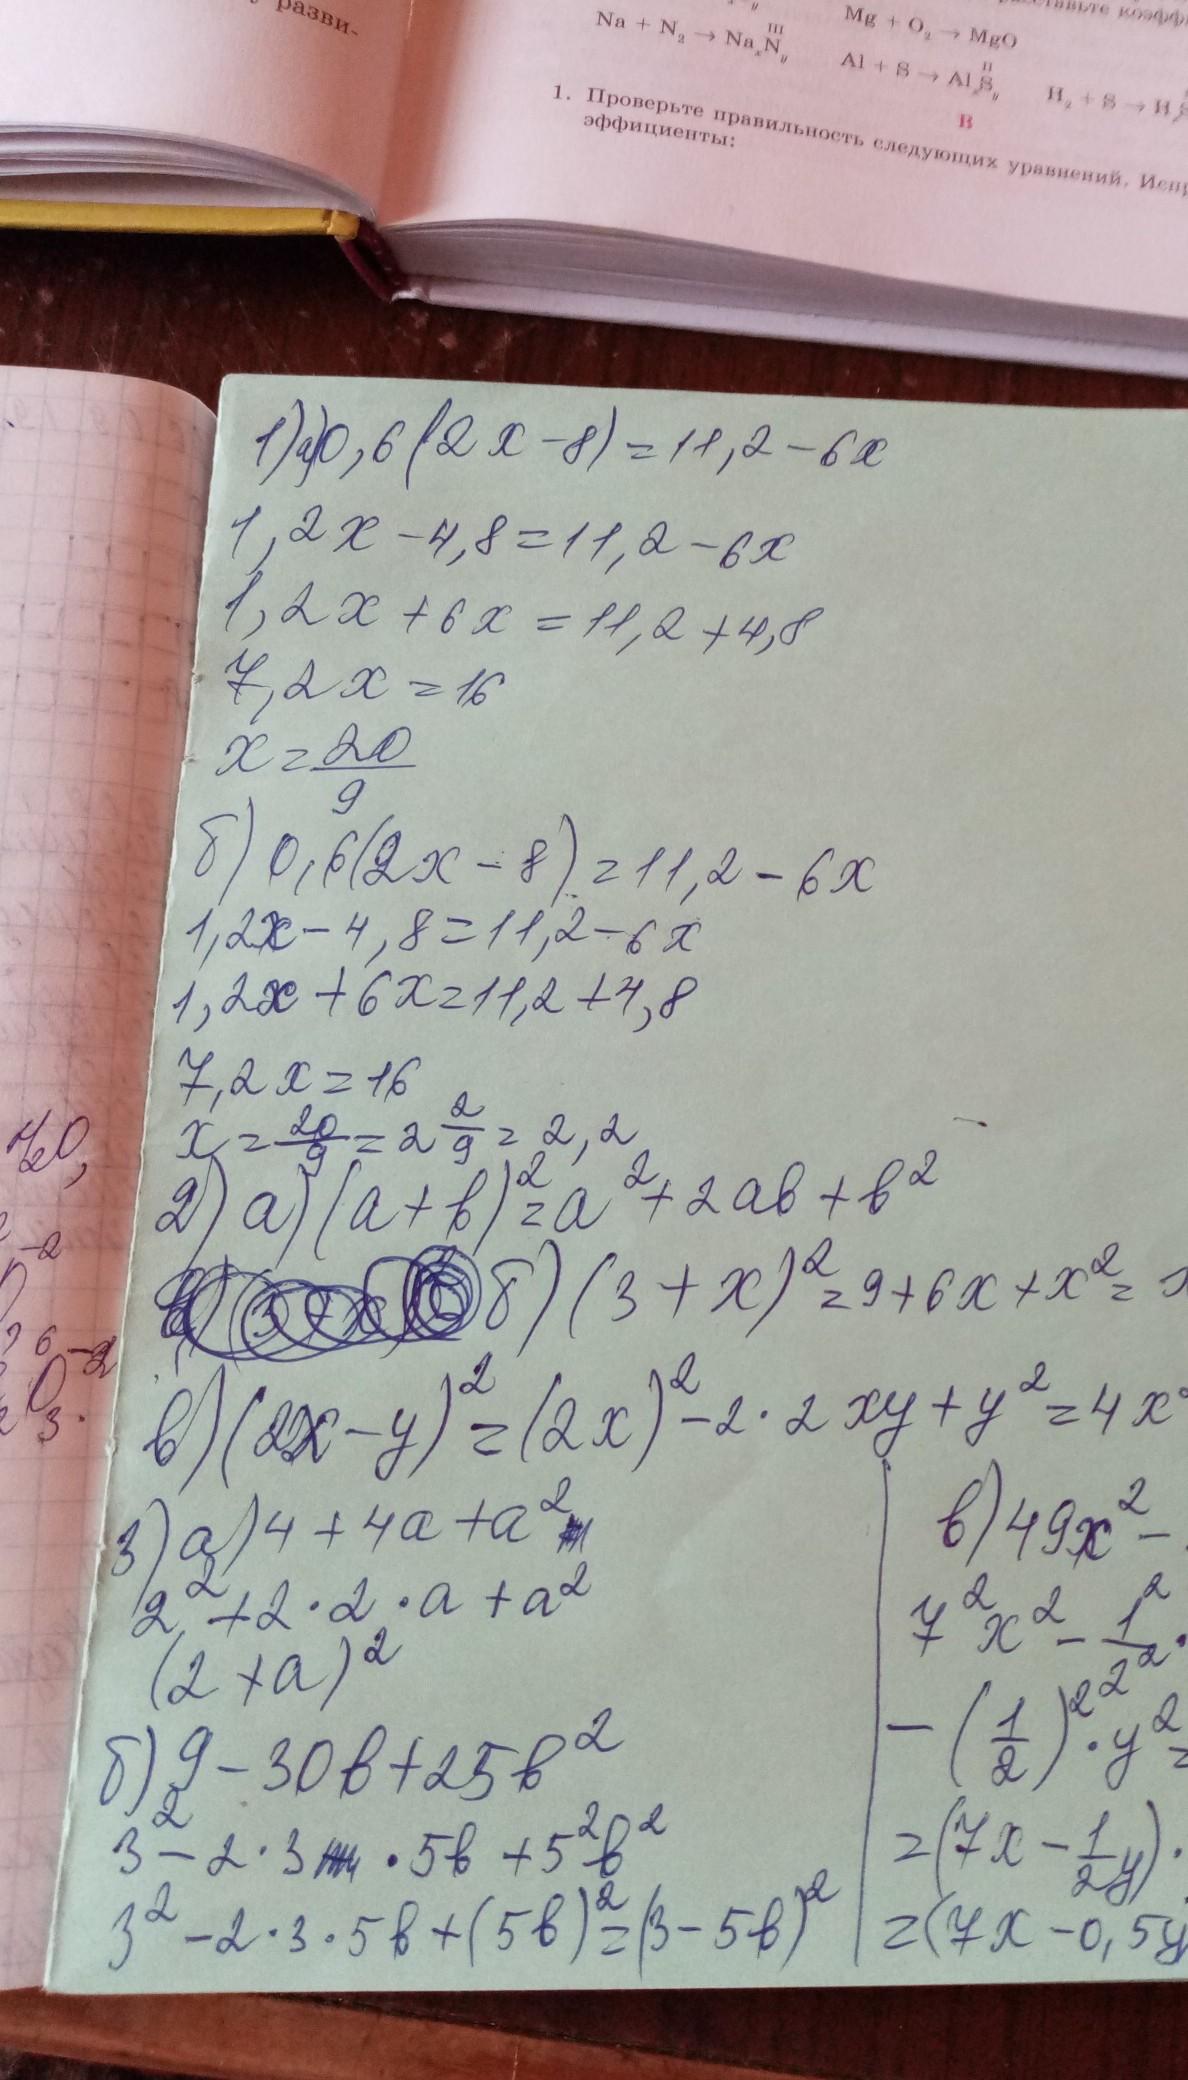 у разви-
Na + N₂ → NaₓNᵧ
III
Mg + O₂ → MgO
Al + S → AlₓSᵧ
II
H₂ + S → H
В
1. Проверьте правильность следующих уравнений. Испр
эффициенты:
1) а) 0,6(2x-8)=11,2-6x
1,2x-4,8=11,2-6x
1,2x+6x=11,2+4,8
7,2x=16
x=20/9
б) 0,6(2x-8)=11,2-6x
1,2x-4,8=11,2-6x
1,2x+6x=11,2+4,8
7,2x=16
x=20/9=2 2/9=2,2
2) а) (a+b)²=a²+2ab+b²
б) (3+x)²=9+6x+x²=
в) (2x-y)²=(2x)²-2·2xy+y²=4x²
3) а) 4+4a+a²
2²+2·2·a+a²
(2+a)²
б) 9-30b+25b²
3²-2·3·5b+5²b²
3²-2·3·5b+(5b)²=(3-5b)²
в) 49x²-
7²x²-1²/2²·
-(1/2)²·y²=
=(7x-1/2y)·
=(7x-0,5y